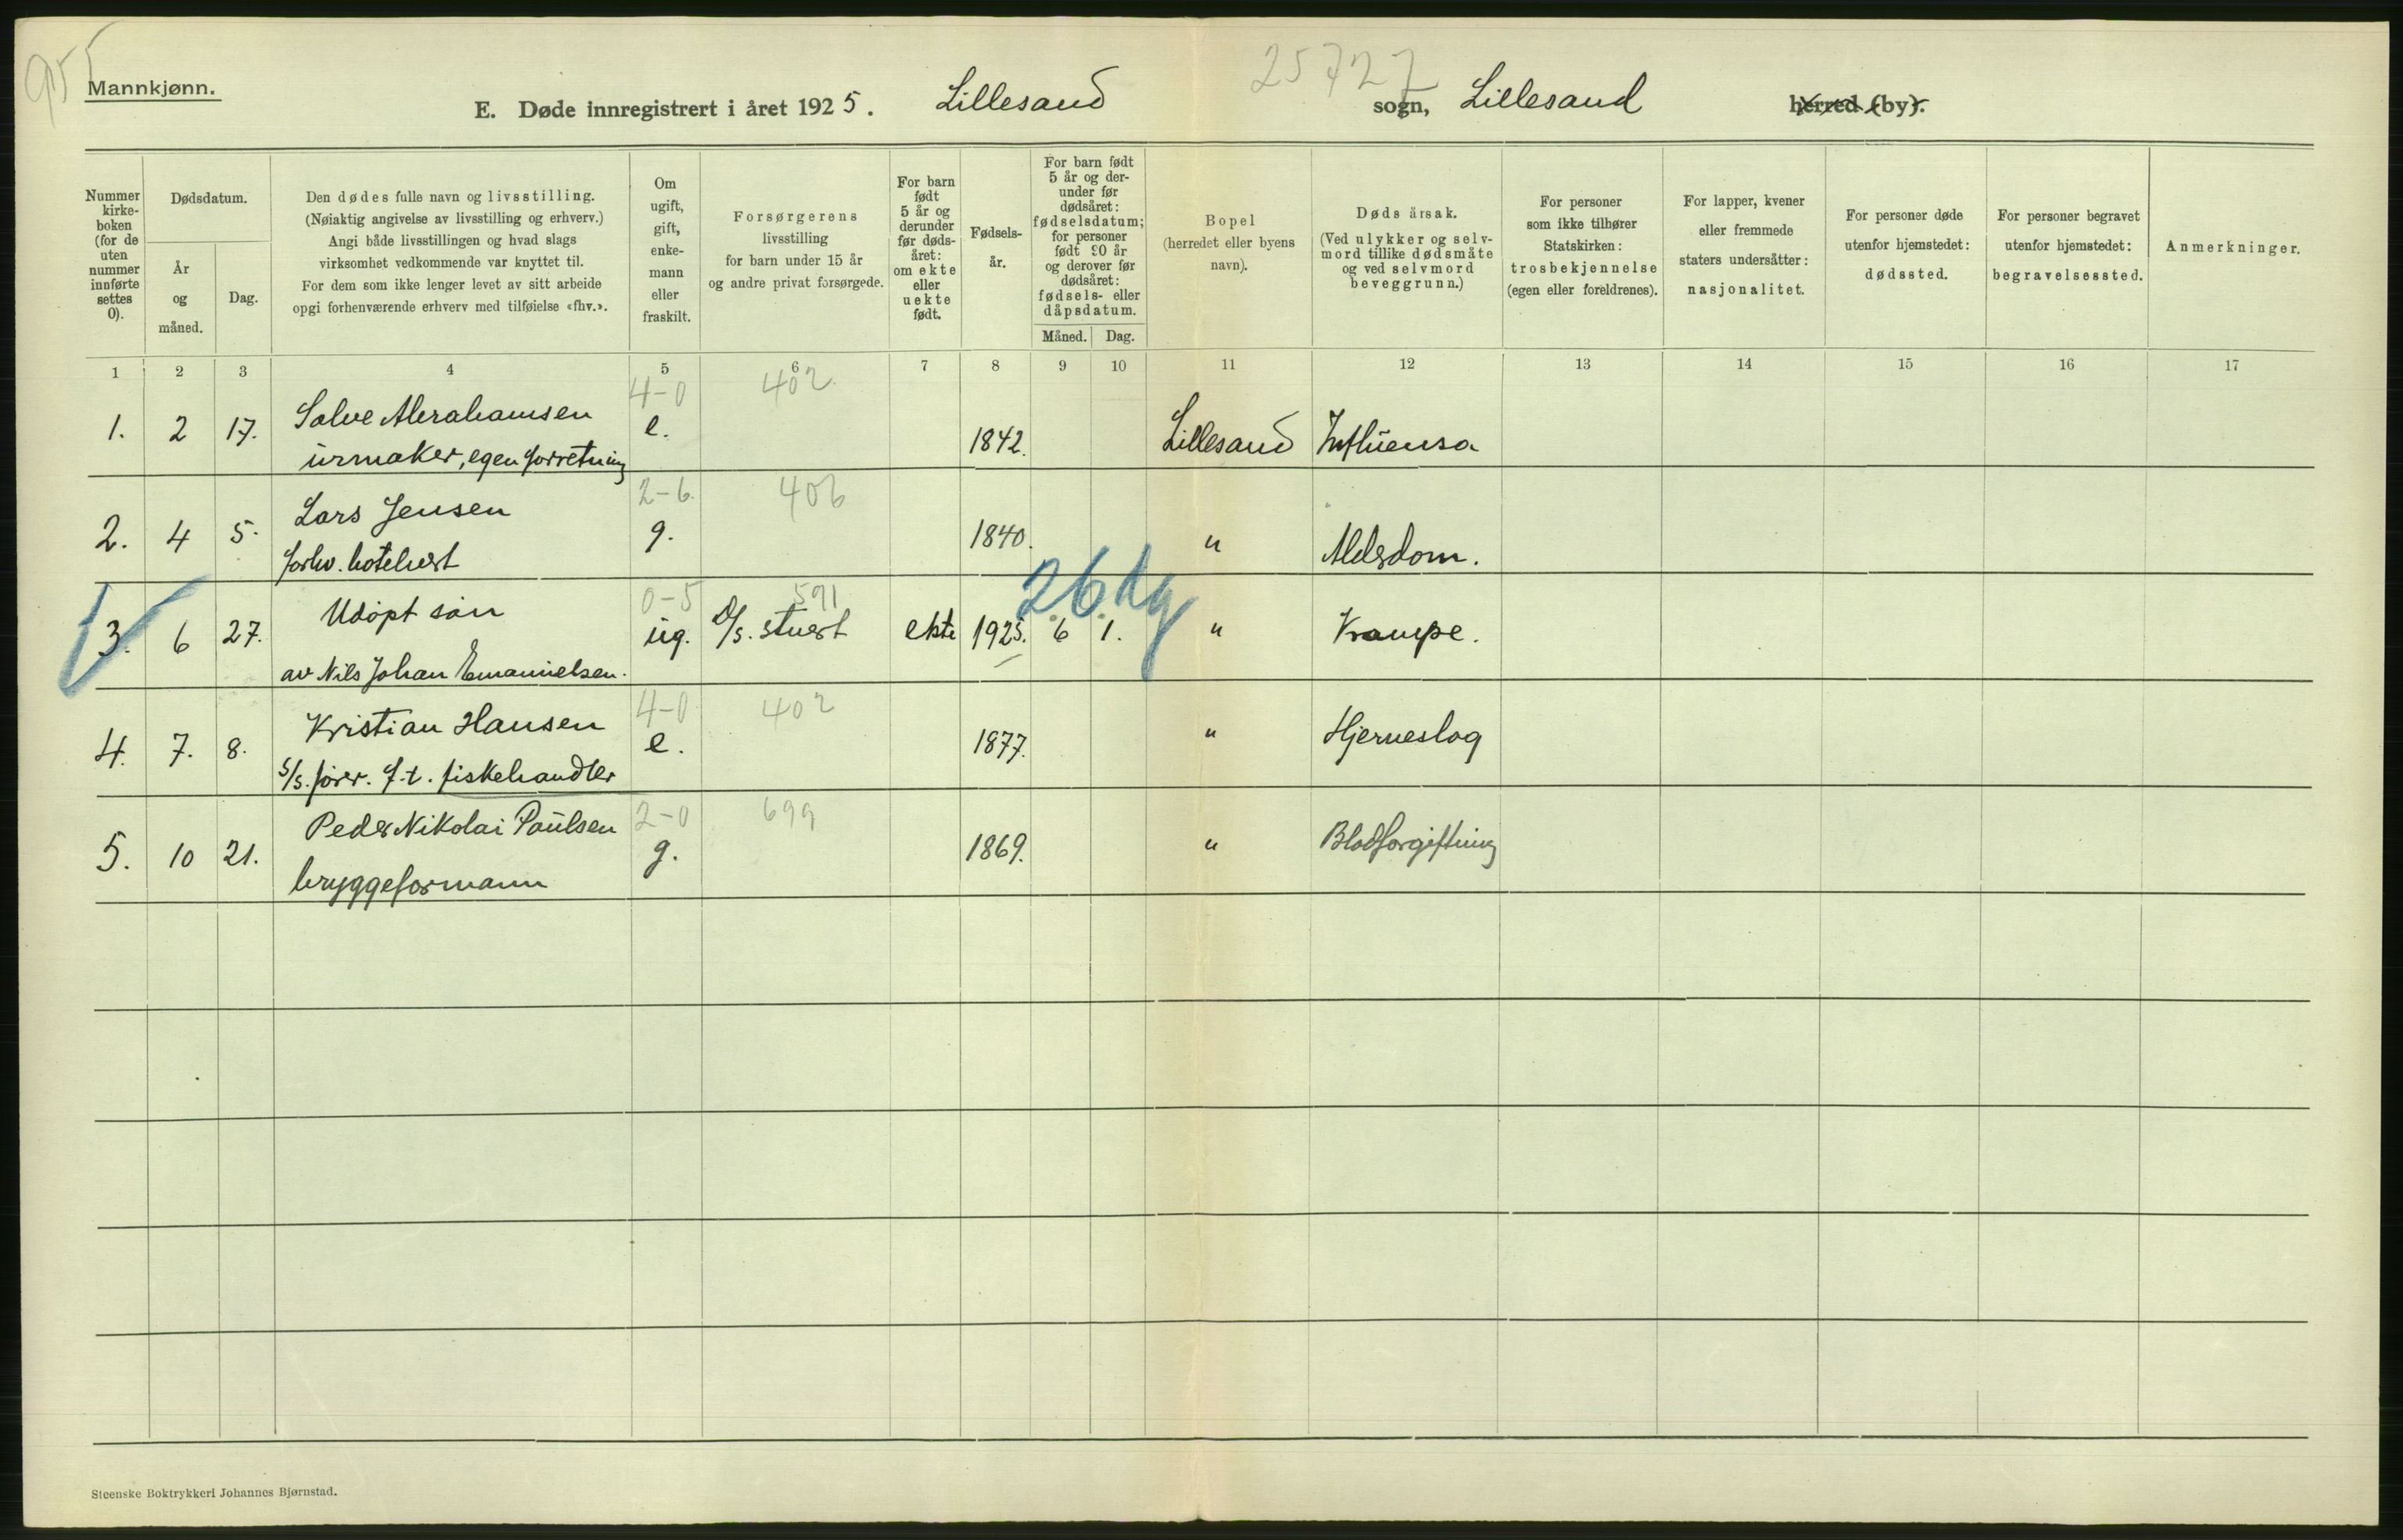 955
Mannkjønn.
25727
E. Døde innregistrert i året 1925. Lillesand sogn, Lillesand herred (by).
Nummer kirke-boken (for de uten nummer innførte settes 0).
Dødsdatum.
År og måned.
Dag.
Den dødes fulle navn og livsstilling.
(Nøiaktig angivelse av livsstilling og erhverv.)
Angi både livsstillingen og hvad slags
virksomhet vedkommende var knyttet til.
For dem som ikke lenger levet av sitt arbeide
opgi forhenværende erhverv med tilføielse «fhv.».
Om ugift, gift, enke-mann eller fraskilt.
Forsørgerens
livsstilling
for barn under 15 år
og andre privat forsørgede.
For barn født 5 år og derunder før døds-året: om ekte eller uekte født.
Fødsels-år.
For barn født 5 år og der-under før dødsåret: fødselsdatum; for personer født 90 år og derover før dødsåret: fødsels- eller dåpsdatum.
Måned. Dag.
Bopel
(herredet eller byens
navn).
Døds årsak.
(Ved ulykker og selv-
mord tillike dødsmåte
og ved selvmord
beveggrunn.)
For personer
som ikke tilhører
Statskirken:
trosbekjennelse
(egen eller foreldrenes).
For lapper, kvener
eller fremmede
staters undersåtter:
nasjonalitet.
For personer døde
utenfor hjemstedet:
dødssted.
For personer begravet
utenfor hjemstedet:
begravelsessted.
Anmerkninger.
1 2 3 4 5 6 7 8 9 10 11 12 13 14 15 16 17
4-0 402
1. 2 17. Salve Abrahamsen e. 1842. Lillesand Influensa
urmaker, egen forretning
2-6. 406
2. 4 5. Lars Jensen g. 1840. " Aldersdom.
forhv. hotelvert
0-5 591 26 dg
3. 6 27. Udøpt søn ug. D/s. stuert ekte 1925. 6 1. " Krampe.
av Nils Johan Emanuelsen.
4-0 402
4. 7. 8. Kristian Hansen e. 1877. " Hjerneslag
S/s. fører. f.t. fiskehandler
2-0 699
5. 10 21. Peder Nikolai Paulsen g. 1869. " Blodforgiftning
bryggeformann
Steenske Boktrykkeri Johannes Bjørnstad.